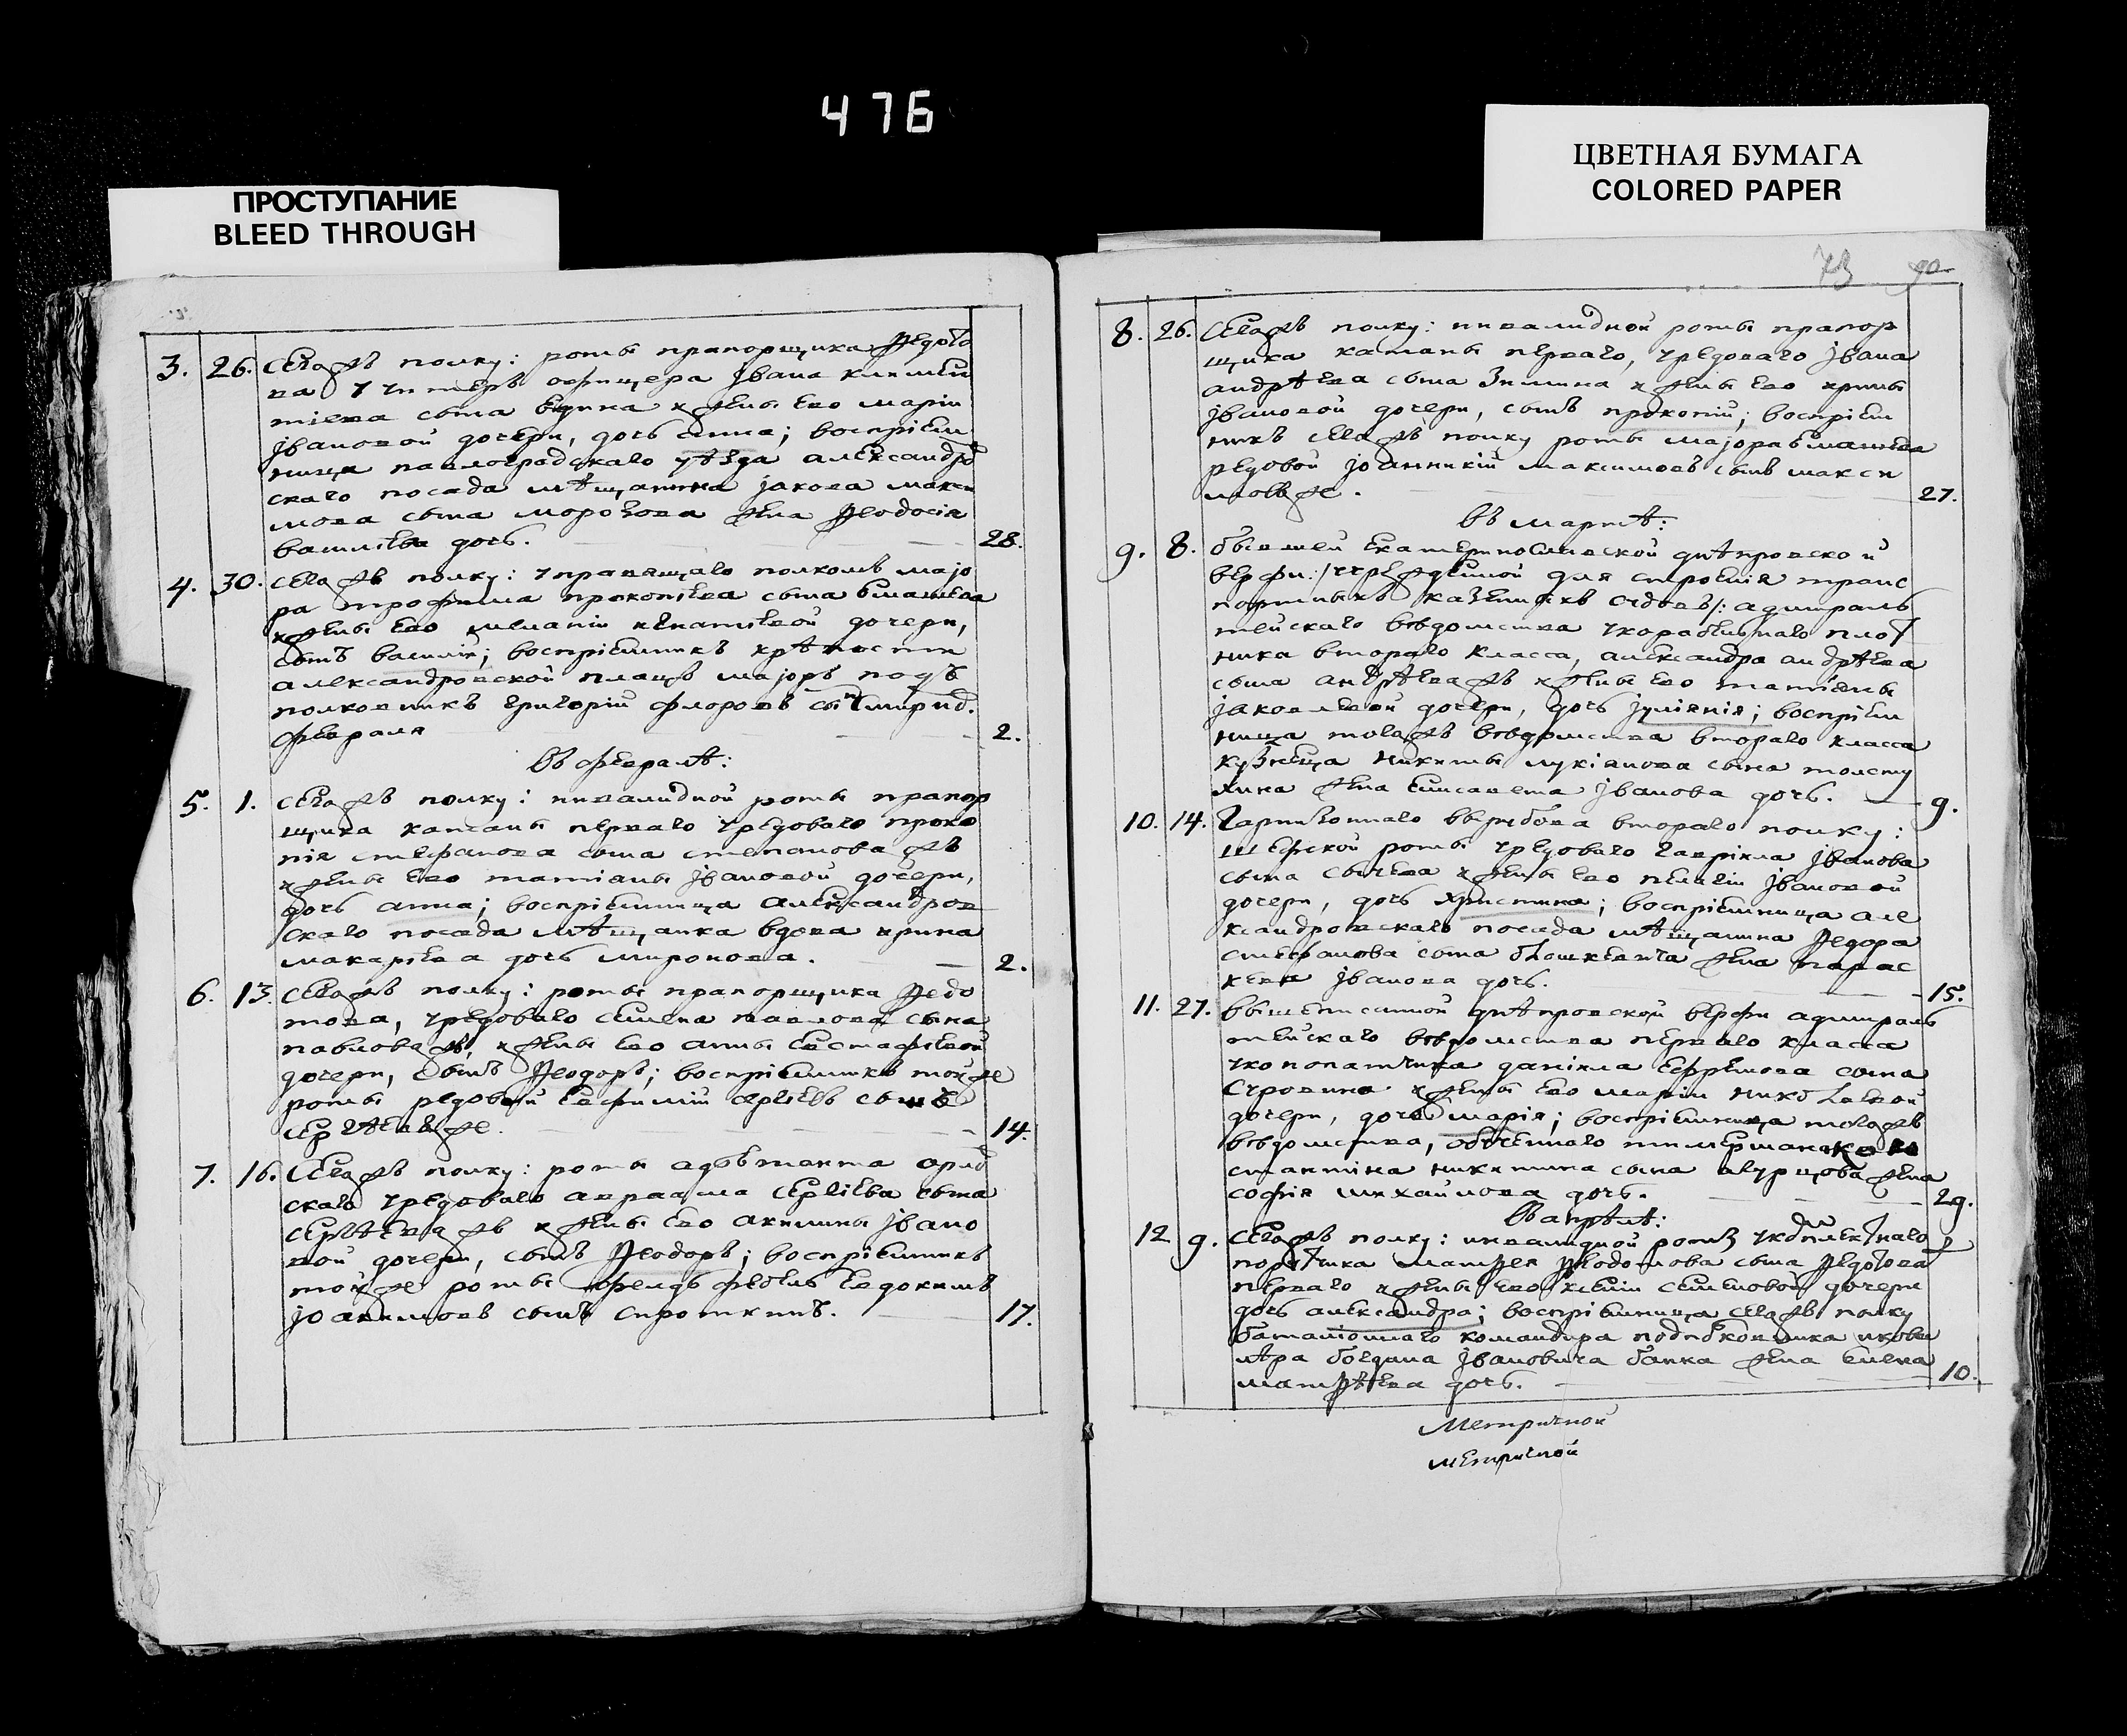 476
ПРОСТУПАНИЕ
BLEED THROUGH
ЦВЕТНАЯ БУМАГА
COLORED PAPER
73 90
3. 26. Сегожъ полку: роты прапорщика Ѳедото
ва у унтеръ офицера Јвана климен
тиева сына жены его маріи
Јвановой дочери, дочь анна; воспріем
ница павлоградскаго уѣзда александро
скаго посада мѣщанина јакова макси
мова сына морозова жена Ѳеодосіа
василіева дочь. 28.
4. 30. Сегожъ полку: управящаго полкомъ мајо
ра трофима прокопіева сына
и жены его меланіи игнатіевой дочери,
сынъ василій; воспріемникъ крѣпости
александровской плацъ мајоръ подъ
полковникъ григорій флоровъ сынъ
февраля 2.
въ февралѣ:
5. 1. Сегожъ полку: инвалидной роты прапор
щика катаны перваго у редоваго проко
пія стефанова сына степановажъ
и жены его татіаны јвановой дочери,
дочь анна; воспріемница александров
скаго посада мѣщанка вдова ирина
макаріева дочь миронова. 2.
6. 13. Сегожъ полку: роты прапорщика Ѳедо
това, у редоваго семена павлова сына
павловажъ, и жены его анны евстафіевой
дочери, сынъ Ѳеодоръ; воспріемникъ тойже
роты редовый евфимій сергіевъ сынъ
сергѣевъже. 14.
7. 16. Сегожъ полку: роты адъютанта
скаго у редоваго авраама сергіева сына
сергѣеважъ и жены его акилины јвано
вой дочери, сынъ Ѳеодоръ; воспріемникъ
тойже роты фелдъ фебель евдокимъ
јоакимовъ сынъ сироткинъ. 17.
8. 26. Сегожъ полку: инвалидной роты прапор
щика катаны перваго, у редоваго јвана
андрѣева сына Зимина и жены его ирины
јвановой дочери, сынъ прокопій; воспріем
никъ сегожъ полку роты мајора
редовой јоанникій максимовъ сынъ макси
мовъже. 27.
въ мартѣ:
9. 8. бывшей екатеринославской днѣпровской
верфи:/учрежденной для строенія транс
портныхъ казенныхъ судовъ/: адмираль
тейскаго вѣдомства у корабельнаго плот
ника втораго класса, александра андрѣева
сына андрѣеважъ и жены его татіаны
јаковлевой дочери, дочь јуліянія; воспріем
ница тогожъ вѣдомства втораго класса
кузнеца никиты лукіанова сына толсту
хина жена елисавета јванова дочь. 9.
10. 14. Гарнизоннаго втораго полку:
шефской роты у редоваго гавріила јванова
сына сычева и жены его пелагіи јвановой
дочери, дочь христина; воспріемница але
ксандровскаго посада мѣщанина Ѳедора
стефанова сына жена парас
кева јванова дочь. 15.
11. 27. вышеписанной днѣпровской верфи адмираль
тейскаго вѣдомства перваго класса
у конопатчика даніила ефремова сына
Суровина и жены его маріи николаевой
дочери, дочь марія; воспріемница тогожъ
вѣдомства, обученнаго тимермана ко
стантина никитина сына жена
софія михаилова дочь. 29.
въ апрѣлѣ:
12 9. Сегожъ полку: инвалидной роты у комплектнаго
порутчика матфея Ѳеодотова сына Ѳедотова
перваго и жены его ксеніи семеновой дочери
дочь александра; воспріемница сегожъ полку
баталіоннаго командира подполковника икова
лѣра богдана јвановича банка жена елена
матфѣева дочь. 10.
Метричной
метричной